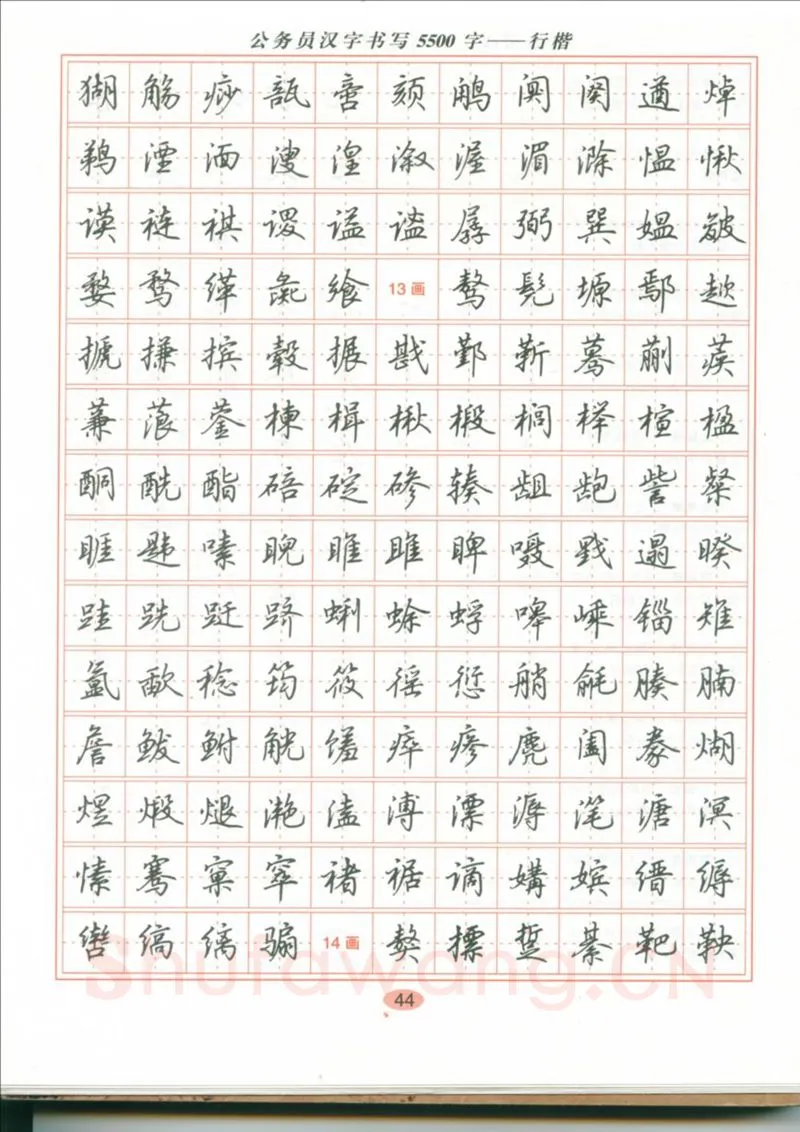 公务员汉字书写5500字——行楷
猢 觞 痧 瓿 啻 颏 鹇 阒 阕 遒 焯
鹈 湮 湎 溲 湟 溆 渥 湄 滁 愠 愀
谟 裢 祺 谡 谥 谧 孱 弼 巽 媪 皴
婺 骛 缂 毳 飨 13画 鹜 髡 塬 鄢 趑
摅 搛 摈 毂 搌 戡 鄞 靳 蓦 蒯 蒺
蒹 蒗 蓥 楝 楫 楸 椴 榈 榉 楦 楹
酮 酰 酯 碚 碇 碜 辏 龃 龅 訾 粲
睚 韪 嗉 睨 睢 雎 睥 嗫 戥 遢 暌
跬 跣 跹 跻 蜊 蜍 蜉 嗥 嵊 锱 雉
氲 歃 稔 筠 筱 徭 愆 艄 毹 腠 腩
詹 鲅 鲋 觥 馐 瘁 瘆 麂 阖 豢 煳
煜 煅 煺 滟 溘 溥 溧 溽 滗 溏 溟
愫 骞 窠 窣 褚 裾 谪 媾 嫔 缙 缛
辔 缟 缡 骟 14画 獒 摽 踅 綦 靶 鞅
44
Shufawang.CN